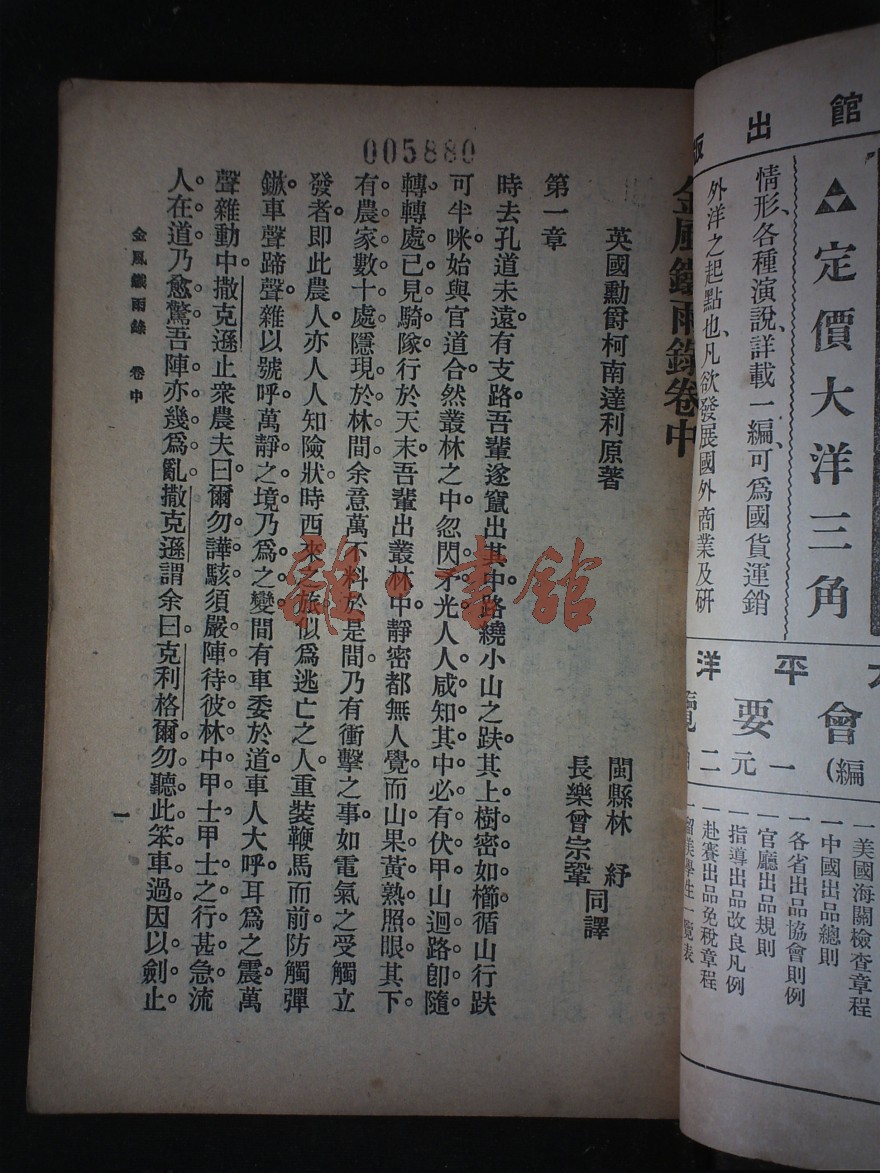 005880
金風鐵雨錄卷中
英國勳爵柯南達利原著
閩縣林　紓
長樂曾宗鞏
同譯
第一章
時去孔道未遠。有支路吾輩遂竄出其中。路繞小山之趺。其上樹密如櫛。循山行趺
可半咪。始與官道合。然叢林之中。忽閃矛光。人人咸知其中必有伏甲。山迴路卽隨
轉轉處。已見騎隊行於天末。吾輩出叢林中。靜密都無人覺。而山果黃熟照眼。其下
有農家數十處隱現於林間。余意萬不料於是間。乃有衝擊之事。如電氣之受觸立
發者。卽此農人亦人人知險狀。時西來之旅。似爲逃亡之人。重裝鞭馬而前。防觸彈
鏃。車聲蹄聲雜以號呼。萬靜之境。乃爲之變。間有車委於道。車人大呼。耳爲之震。萬
聲雜動中。撒克遜止衆農夫曰。爾勿譁駭。須嚴陣待彼林中甲士。甲士之行甚急。流
人在道。乃愈驚。吾陣亦幾爲亂。撒克遜謂余曰。克利格爾勿聽此笨車過。因以劍止。
金風鐵雨錄　卷中
一
雜·書館
館出版
定價大洋三角
情形、各種演說、詳載一編、可爲國貨運銷
外洋之起點也、凡欲發展國外商業及研
平洋
會要覽
(編
一元二
一美國海關檢查章程
一中國出品總則
一各省出品協會則例
一官廳出品規則
指導出品改良凡例
一赴賽出品免稅章程
一留美學生一覽表